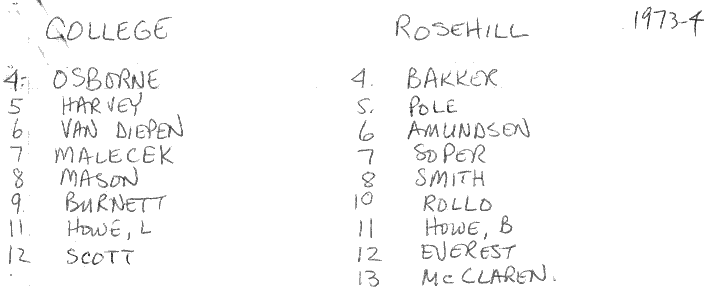 COLLEGE ROSEHILL 1973-4
4. OSBORNE 4. BAKKER
5 HARVEY 5. POLE
6 VAN DIEPEN 6 AMUNDSEN
7 MALECEK 7 SOPER
8 MASON 8 SMITH
9. BURNETT 10 ROLLO
11. HOWE, L 11 HOWE, B
12 SCOTT 12 EVEREST
13 McCLAREN.